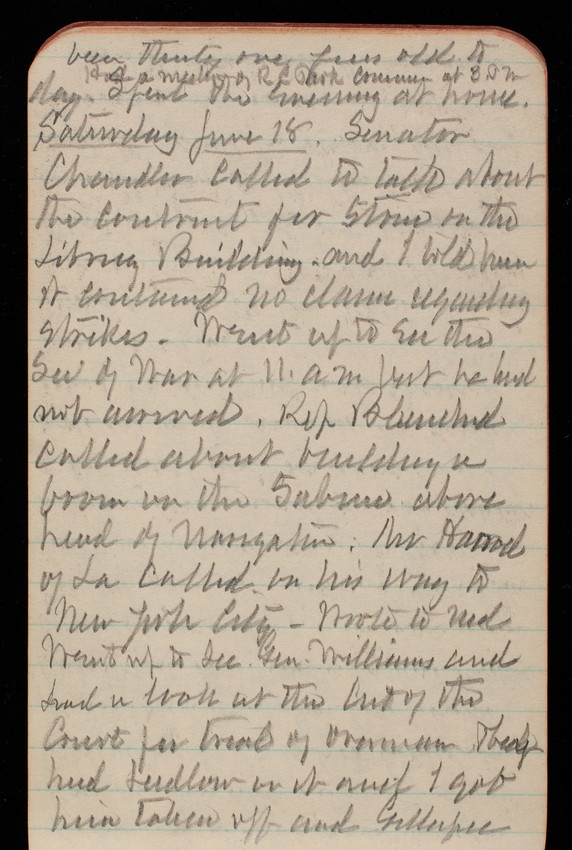 been thirty one years old to
Had a meeting of R.C. Park Commn at 3 P.M
day. Spent the Evening at home.
Saturday June 18. Senator
Chandler called to talk about
the contract for Stone on the
Library Building. and I told him
it contained no clause regarding
strikes. Went up to See the
Sec of War at 11. a m but he had
not arrived. Rep Blanchard
called about building a
boom on the Sabine above
head of Navigation. Mr Harrod
of La Called. on his way to
New York City - Wrote to Ned
Went up to See Gen. Williams and
had a look at the list of the
Court for trial of Overman They
had Ludlow on it and I got
him taken off and Gillespie